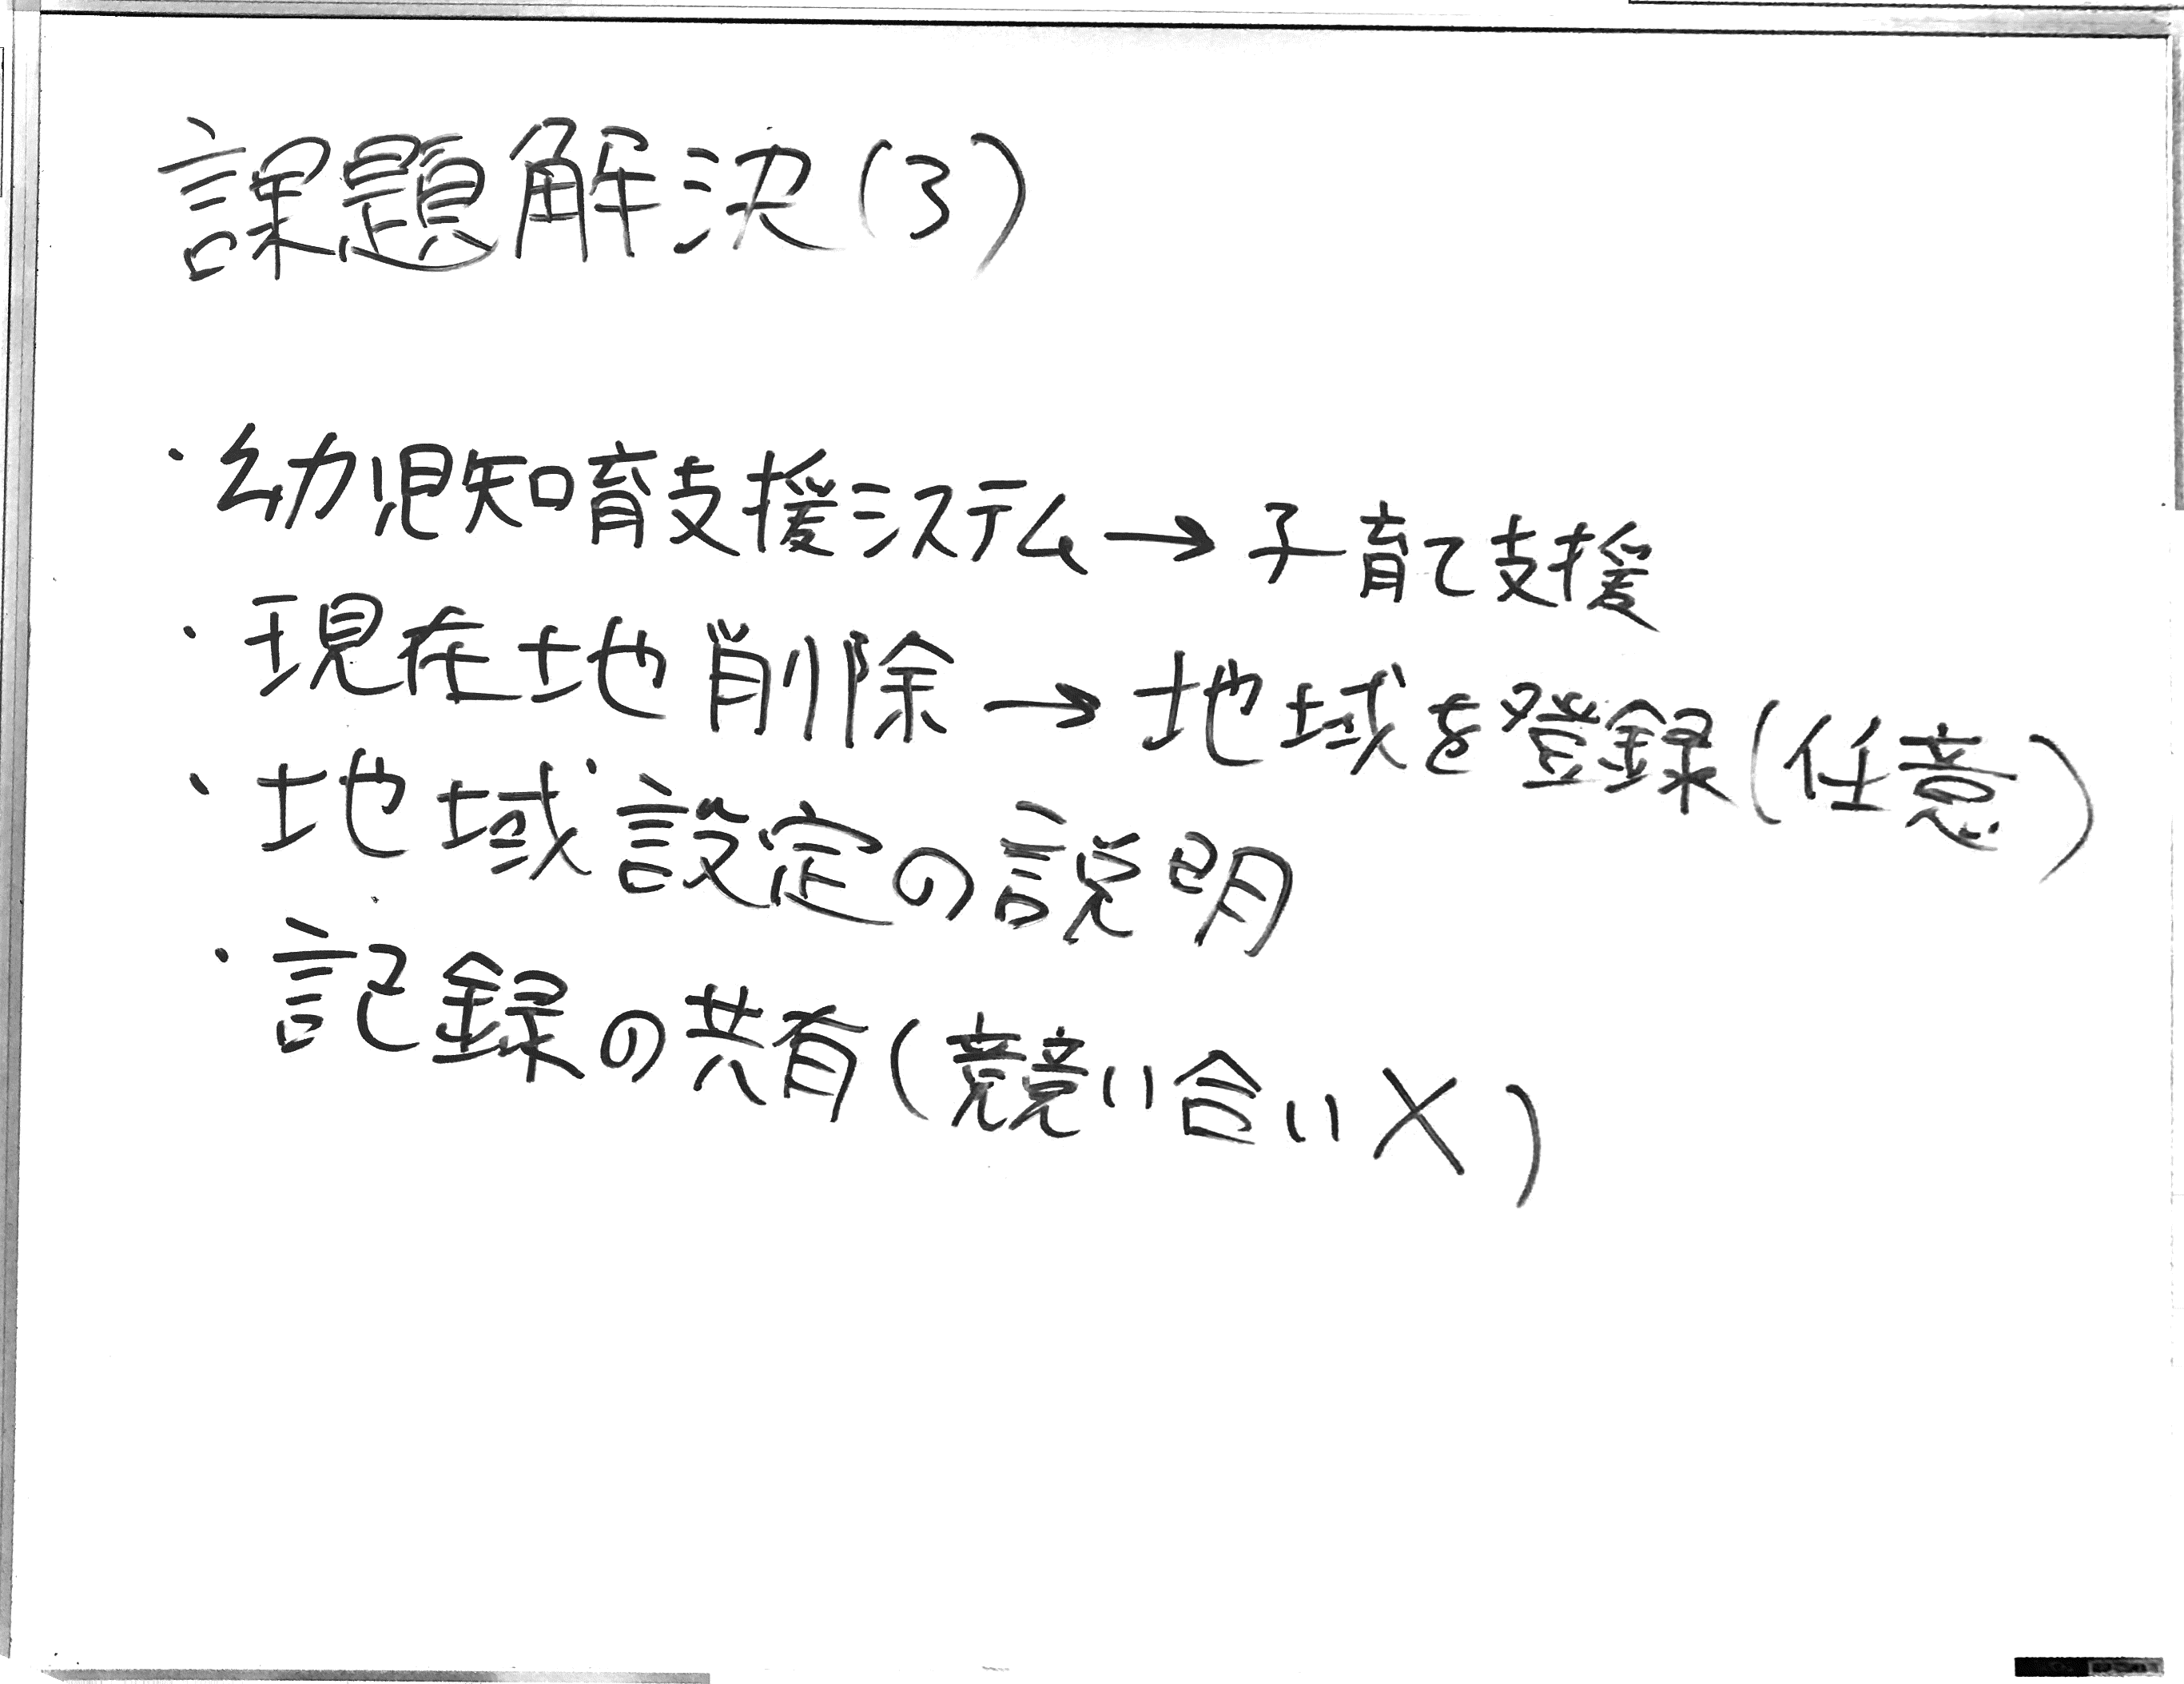 課題解決(3)
・幼児知育支援システム→子育て支援
・現在地削除→地域を登録(任意)
・地域設定の説明
・記録の共有(競い合い×)